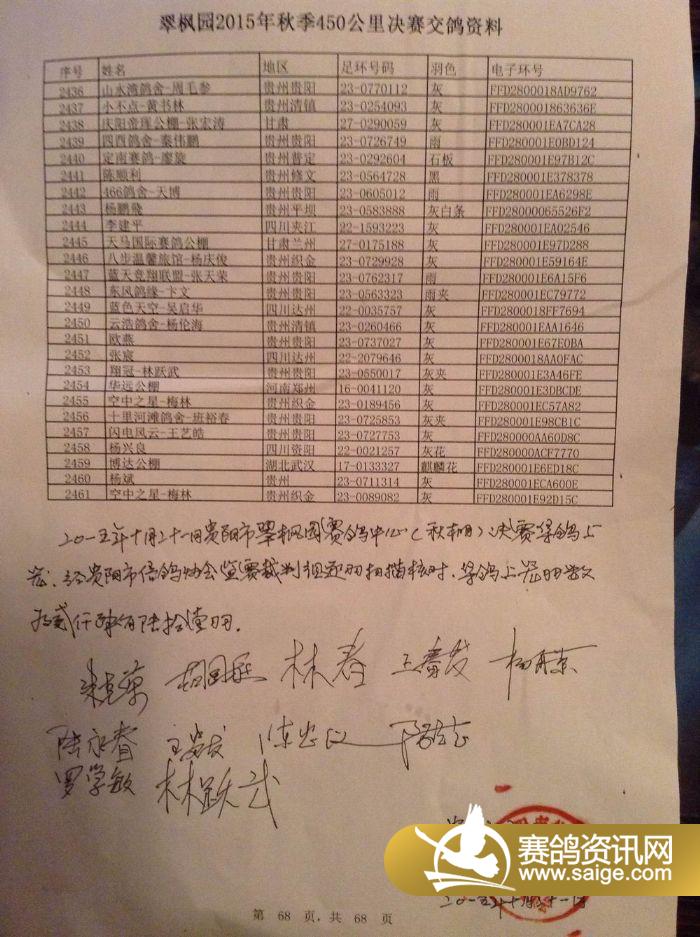 翠枫园2015年秋季450公里决赛交鸽资料
序号 姓名 地区 足环号码 羽色 电子环号
2436 山水湾鸽舍-周毛参 贵州贵阳 23-0770112 灰 FFD2800018AD9762
2437 小不点-黄书林 贵州清镇 23-0254093 灰 FFD2800001863636E
2438 庆阳帝珲公棚-张宏涛 甘肃 27-0290059 灰 FFD280001EA7CA28
2439 四西鸽舍-秦伟鹏 贵州贵阳 23-0726749 雨 FFD280001E0BD124
2440 定南赛鸽-廖旋 贵州普定 23-0292604 石板 FFD280001E97B12C
2441 陈顺利 贵州修文 23-0564728 黑 FFD280001E378378
2442 466鸽舍-天博 贵州贵阳 23-0605012 雨 FFD280001EA6298E
2443 杨鹏飛 贵州平坝 23-0583888 灰白条 FFD28000065526F2
2444 李建平 四川夹江 22-1593223 灰 FFD280001EA02546
2445 天马国际赛鸽公棚 甘肃兰州 27-0175188 灰 FFD280001E97D288
2446 八步温馨旅馆-杨庆俊 贵州织金 23-0729928 灰 FFD280001E59164E
2447 蓝天竞翔联盟-张天荣 贵州贵阳 23-0762317 雨 FFD280001E6A15F6
2448 东风鸽缘-卞文 贵州贵阳 23-0563323 雨夹 FFD280001EC79772
2449 蓝色天空-吴启华 四川达州 22-0035757 灰 FFD2800018FF7694
2450 云浩鸽舍-杨伦海 贵州清镇 23-0260466 灰 FFD280001EAA1646
2451 欧燕 贵州贵阳 23-0737027 灰 FFD280001E67E0BA
2452 张宸 四川达州 22-2079646 灰 FFD2800018AA0FAC
2453 翔冠-林跃武 贵州贵阳 23-0550017 灰夹 FFD280001E3A46FE
2454 华远公棚 河南郑州 16-0041120 灰 FFD280001E3DBCDE
2455 空中之星-梅林 贵州织金 23-0189456 灰 FFD280001EC57A82
2456 十里河滩鸽舍-班裕春 贵州贵阳 23-0725853 灰夹 FFD280001E98CB1C
2457 闪电风云-王艺皓 贵州贵阳 23-0727753 灰 FFD280000AA60D8C
2458 杨兴良 四川资阳 22-0021257 灰花 FFD280000ACF7770
2459 博达公棚 湖北武汉 17-0133327 麒麟花 FFD280001E6ED18C
2460 杨斌 贵州 23-0711314 灰 FFD280001ECA600E
2461 空中之星-梅林 贵州织金 23-0089082 灰 FFD280001E92D15C
二〇一五年十月二十一日贵阳市翠枫园赛鸽中心(秋棚)决赛集鸽上
笼，经贵阳市信鸽协会监赛裁判组 扫描核对，集鸽上笼 数
为贰仟肆佰陆拾壹羽。
林春 王春发
陆永春
罗学敏 林跃武
赛鸽资讯网
www.saige.com
二〇一五年十月二十一日
第 68 页，共 68 页